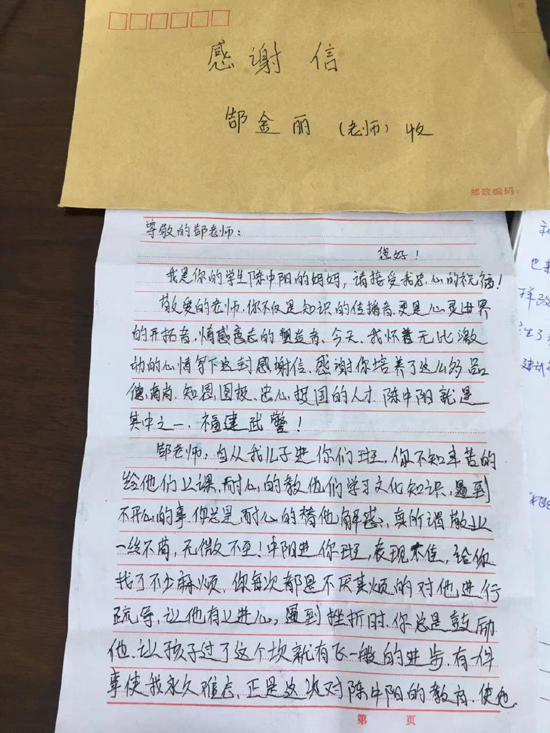 感谢信
郜金丽（老师）收
邮政编码：
尊敬的郜老师：
您好！
我是你的学生陈中阳的妈妈，请接受我忠心的祝福！
敬爱的老师，你不仅是知识的传播者，更是心灵世界
的开拓者，情感意志的塑造者、今天、我怀着无比激
动的心情写下这封感谢信、感谢你培养了这么多品
德高尚、知恩图报、忠心报国的人才、陈中阳就是
其中之一、福建武警！
郜老师，自从我儿子进你们班，你不知辛苦的
给他们上课，耐心的教他们学习文化知识，遇到
不开心的事、你总是耐心的替他解惑，真所谓敬业
一丝不苟，无微不至！中阳进你班，表现不佳，给你
找了不少麻烦，你每次都是不厌其烦的对他进行
疏导、让他有上进心，遇到挫折时、你总是鼓励
他、让孩子过了这个坎就有飞一般的进步、有一件
事使我永久难忘、正是这次对陈中阳的教育、使他
第 页